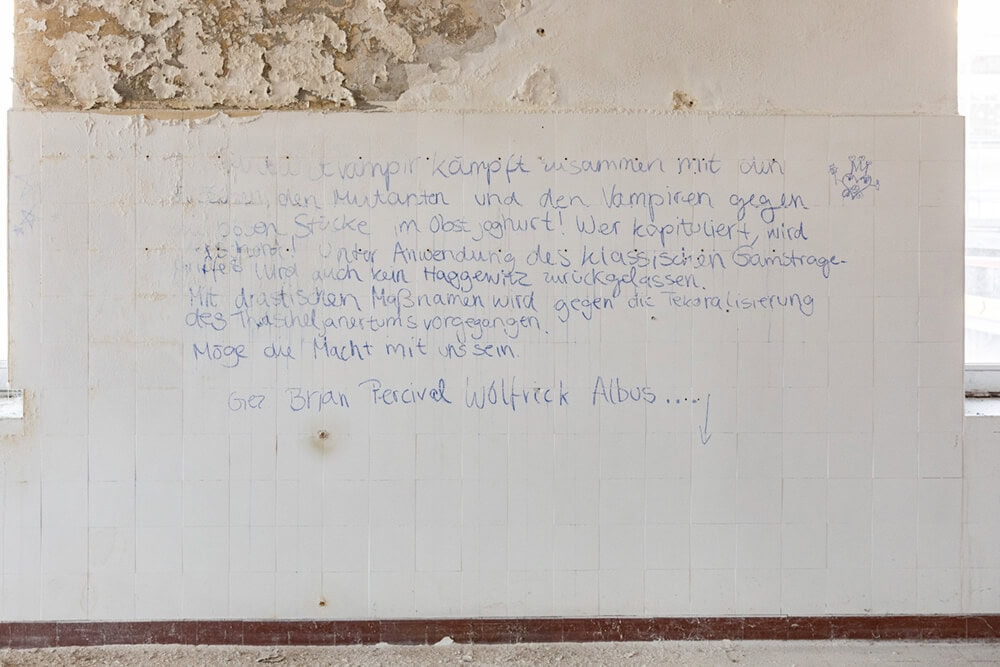 kämpft zusammen mit den
den Mutanten und den Vampiren gegen
Stücke im Obstjoghurt! Wer kapituliert, wird
Unter Anwendung des klassischen Gamstrage-
wird auch kein Haggewitz zurückgelassen.
Mit drastischen Maßnamen wird gegen die Tekoralisierung
des vorgegangen.
Möge die Macht mit uns sein.
Gez Brian Percival Wolfrick Albus.....